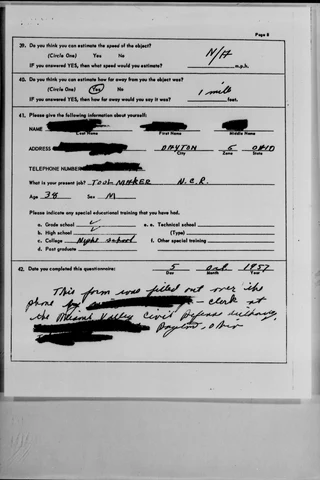 Page 8
39. Do you think you can estimate the speed of the object?
(Circle One) Yes No N/A
IF you answered YES, then what speed would you estimate? m.p.h.
40. Do you think you can estimate how far away from you the object was?
(Circle One) Yes No
IF you answered YES, then how far away would you say it was? 1 mile feet.
41. Please give the following information about yourself:
NAME
Last Name First Name Middle Name
ADDRESS DAYTON 5 OHIO
City Zone State
TELEPHONE NUMBER
What is your present job? TOOL MAKER N.C.R.
Age 38 Sex M
Please indicate any special educational training that you have had.
a. Grade school ✓ e. Technical school
b. High school ✓ (Type)
c. College Night school f. Other special training
d. Post graduate
42. Date you completed this questionnaire: 5 Oct 1957
Day Month Year
This form was filled out over the
phone by – clerk at
the Miami Valley Civil Defense
Dayton, Ohio